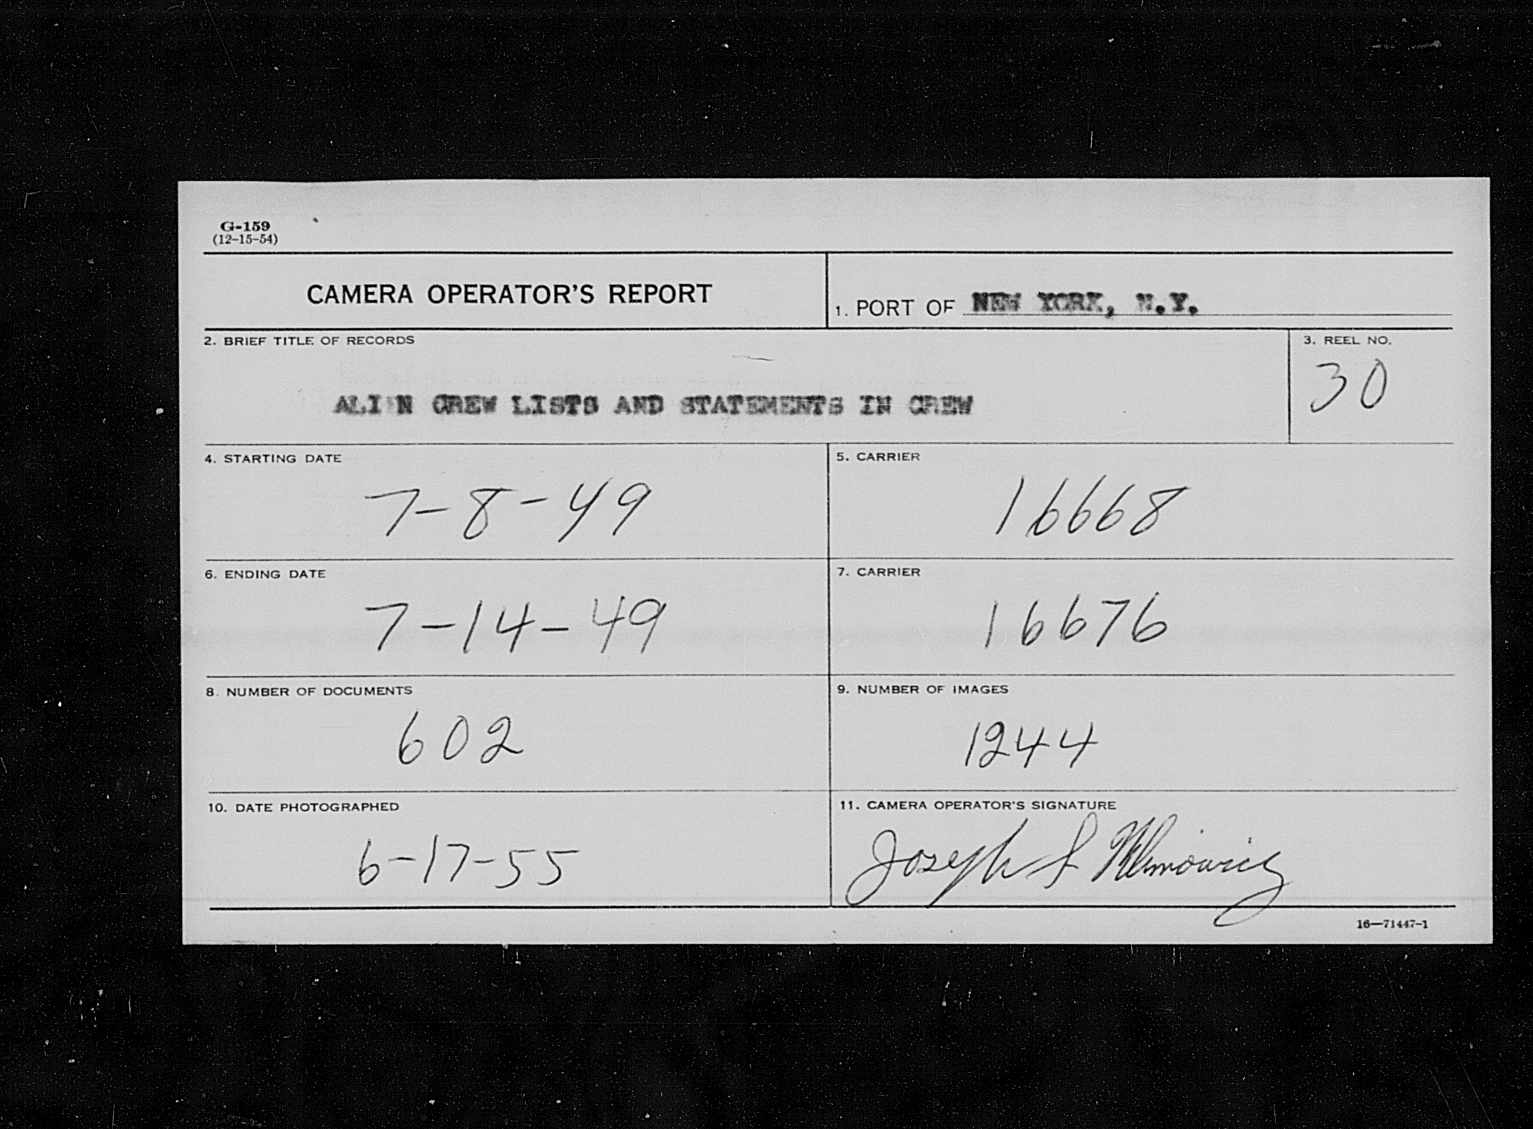 G-159
(12-15-54)
CAMERA OPERATOR'S REPORT
1. PORT OF NEW YORK, N.Y.
2. BRIEF TITLE OF RECORDS
ALIEN CREW LISTS AND STATEMENTS IN CREW
3. REEL NO.
30
4. STARTING DATE
7-8-49
5. CARRIER
16668
6. ENDING DATE
7-14-49
7. CARRIER
16676
8. NUMBER OF DOCUMENTS
602
9. NUMBER OF IMAGES
1244
10. DATE PHOTOGRAPHED
6-17-55
11. CAMERA OPERATOR'S SIGNATURE
Joseph
16—71447-1